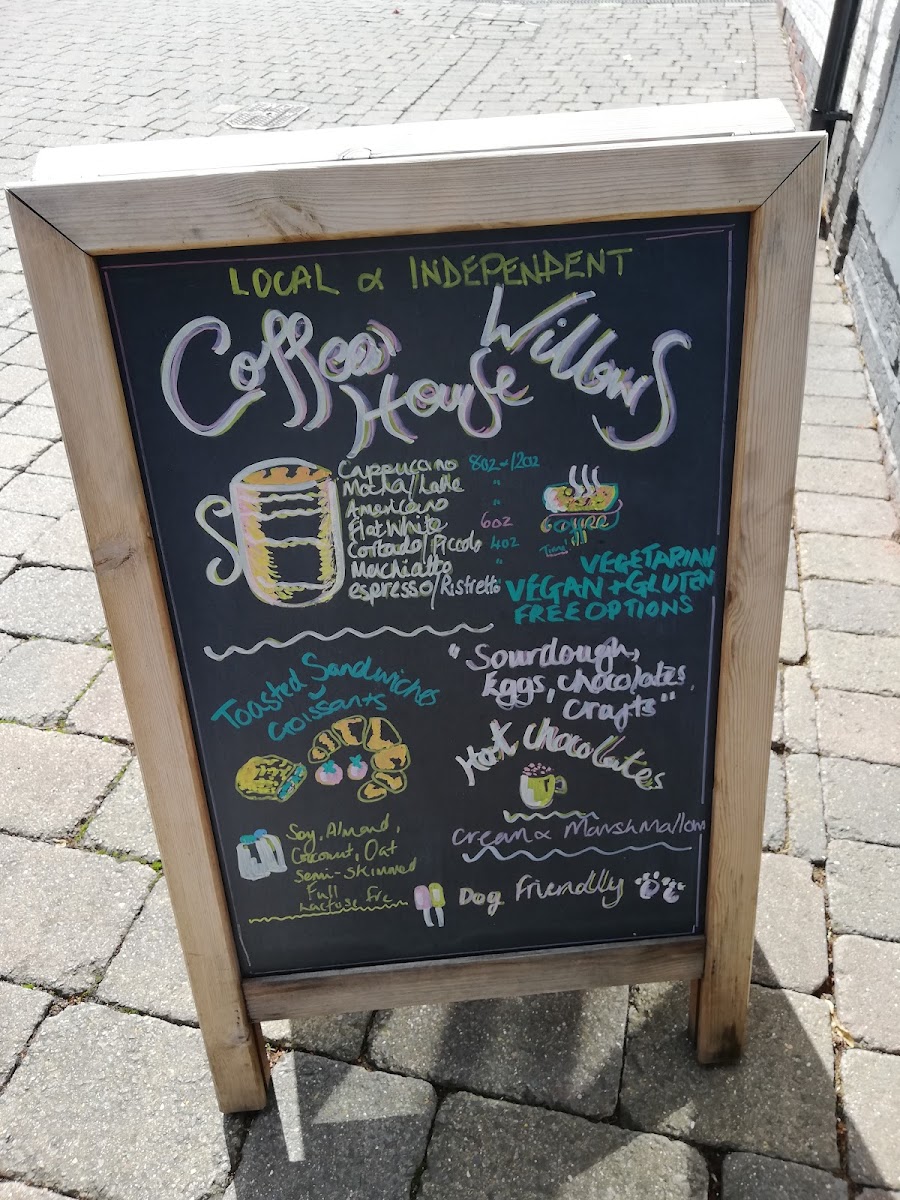 LOCAL & INDEPENDENT
Coffee House Willows
Cappuccino 8oz - 12oz
Mocha/Latte "
Americano "
Flat White 6oz
Cortado/Piccolo 4oz
Machiatto "
espresso/Ristretto "
VEGETARIAN
VEGAN + GLUTEN
FREE OPTIONS
"Sourdough,
Eggs, chocolates,
Crafts"
Toasted Sandwiches
Croissants
Hot Chocolates
Cream & Marshmallow
Soy, Almond,
Coconut, Oat
Semi-Skimmed
Full
Lactose Fre
Dog Friendlly